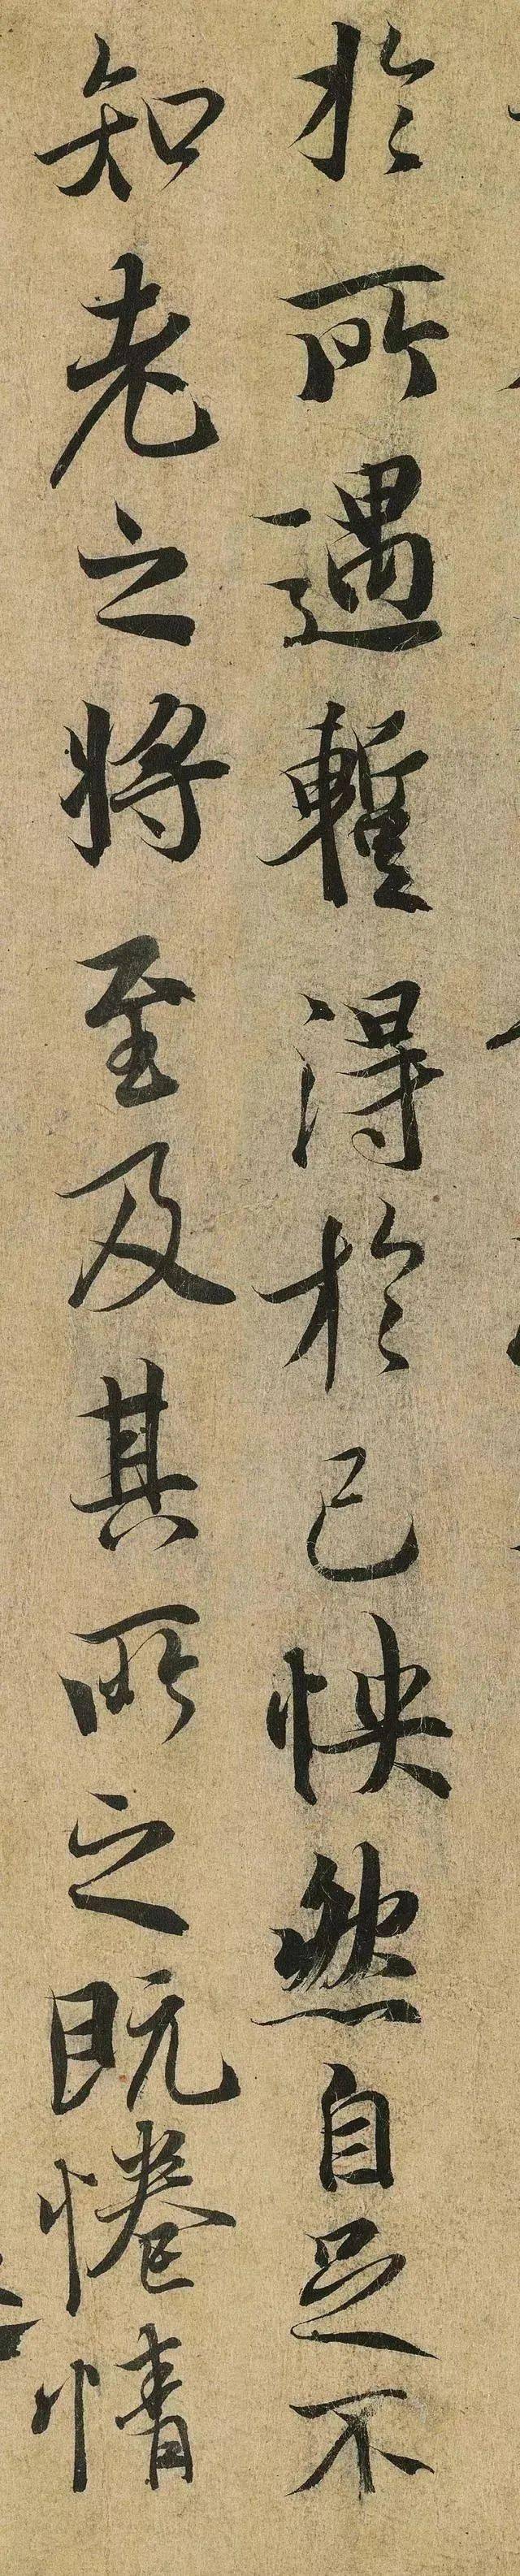 於所遇蹔得於己怏然自足不
知老之將至及其所之既惓情